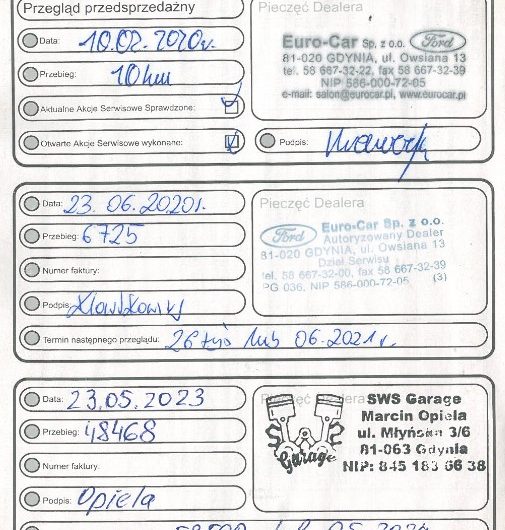 Przegląd przedsprzedażny
Data: 10.02.2020r.
Przebieg: 10 km
Aktualne Akcje Serwisowe Sprawdzone:
Otwarte Akcje Serwisowe wykonane:
Pieczęć Dealera
Euro-Car Sp. z o.o. Ford
81-020 GDYNIA, ul. Owsiana 13
tel. 58 667-32-22, fax 58 667-32-39
NIP 586-000-72-05
e-mail: salon@eurocar.pl, www.eurocar.pl
Podpis:
Data: 23.06.2020r.
Przebieg: 6725
Numer faktury:
Podpis:
Termin następnego przeglądu: 26 tyś lub 06.2021r.
Pieczęć Dealera
Ford Euro-Car Sp. z o.o.
Autoryzowany Dealer
81-020 GDYNIA, ul. Owsiana 13
Dział Serwisu
tel. 58 667-32-00, fax 58 667-32-39
PG 036, NIP 586-000-72-05 (3)
Data: 23.05.2023
Przebieg: 48468
Numer faktury:
Podpis: Opiela
Pieczęć Dealera
SWS Garage
SWS Garage
Marcin Opiela
ul. Młyńska 3/6
81-063 Gdynia
NIP: 845 183 66 38